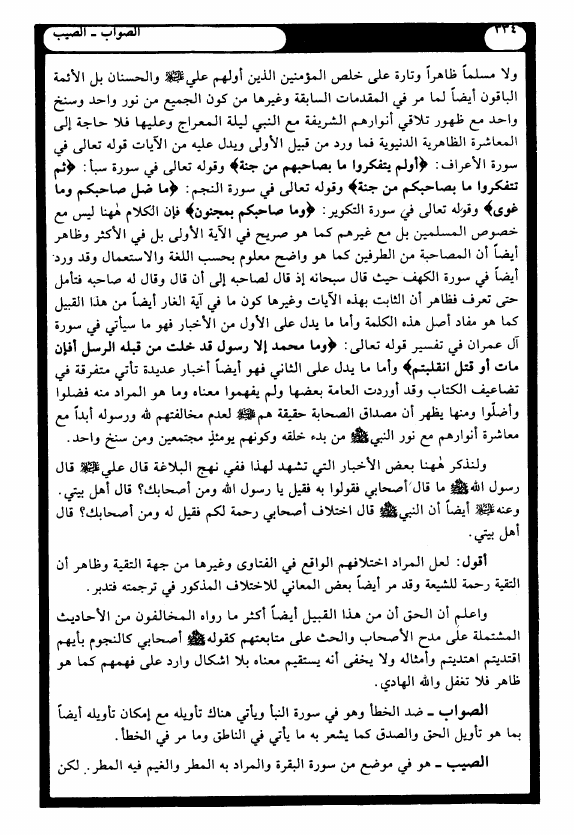 ٣٣٤
الصواب ـ الصيب
ولا مسلماً ظاهراً وتارة على خلص المؤمنين الذين أولهم علي عليه السلام والحسنان بل الأئمة
الباقون أيضاً لما مر في المقدمات السابقة وغيرها من كون الجميع من نور واحد وسنخ
واحد مع ظهور تلاقي أنوارهم الشريفة مع النبي ليلة المعراج وعليها فلا حاجة إلى
المعاشرة الظاهرية الدنيوية فما ورد من قبيل الأولى ويدل عليه من الآيات قوله تعالى في
سورة الأعراف: ﴿أولم يتفكروا ما بصاحبهم من جنة﴾ وقوله تعالى في سورة سبأ: ﴿ثم
تتفكروا ما بصاحبكم من جنة﴾ وقوله تعالى في سورة النجم: ﴿ما ضل صاحبكم وما
غوى﴾ وقوله تعالى في سورة التكوير: ﴿وما صاحبكم بمجنون﴾ فإن الكلام ههنا ليس مع
خصوص المسلمين بل مع غيرهم كما هو صريح في الآية الأولى بل في الأكثر وظاهر
أيضاً أن المصاحبة من الطرفين كما هو واضح معلوم بحسب اللغة والاستعمال وقد ورد
أيضاً في سورة الكهف حيث قال سبحانه إذ قال لصاحبه إلى أن قال وقال له صاحبه فتأمل
حتى تعرف فظاهر أن الثابت بهذه الآيات وغيرها كون ما في آية الغار أيضاً من هذا القبيل
كما هو مفاد أصل هذه الكلمة وأما ما يدل على الأول من الأخبار فهو ما سيأتي في سورة
آل عمران في تفسير قوله تعالى: ﴿وما محمد إلا رسول قد خلت من قبله الرسل أفإن
مات أو قتل انقلبتم﴾ وأما ما يدل على الثاني فهو أيضاً أخبار عديدة تأتي متفرقة في
تضاعيف الكتاب وقد أوردت العامة بعضها ولم يفهموا معناه وما هو المراد منه فضلوا
وأضلّوا ومنها يظهر أن مصداق الصحابة حقيقة هم عليهم السلام لعدم مخالفتهم لله ورسوله أبداً مع
معاشرة أنوارهم مع نور النبي ﷺ من بدء خلقه وكونهم يومئذٍ مجتمعين ومن سنخ واحد.
ولنذكر ههنا بعض الأخبار التي تشهد لهذا ففي نهج البلاغة قال علي عليه السلام قال
رسول الله ﷺ ما قال أصحابي فقولوا به فقيل يا رسول الله ومن أصحابك؟ قال أهل بيتي.
وعنه عليه السلام أيضاً أن النبي ﷺ قال اختلاف أصحابي رحمة لكم فقيل له ومن أصحابك؟ قال
أهل بيتي.
أقول: لعل المراد اختلافهم الواقع في الفتاوى وغيرها من جهة التقية وظاهر أن
التقية رحمة للشيعة وقد مر أيضاً بعض المعاني للاختلاف المذكور في ترجمته فتدبر.
واعلم أن الحق أن من هذا القبيل أيضاً أكثر ما رواه المخالفون من الأحاديث
المشتملة على مدح الأصحاب والحث على متابعتهم كقوله ﷺ أصحابي كالنجوم بأيهم
اقتديتم اهتديتم وأمثاله ولا يخفى أنه يستقيم معناه بلا اشكال وارد على فهمهم كما هو
ظاهر فلا تغفل والله الهادي.
الصواب ـ ضد الخطأ وهو في سورة النبأ ويأتي هناك تأويله مع إمكان تأويله أيضاً
بما هو تأويل الحق والصدق كما يشعر به ما يأتي في الناطق وما مر في الخطأ.
الصيب ـ هو في موضع من سورة البقرة والمراد به المطر والغيم فيه المطر. لكن